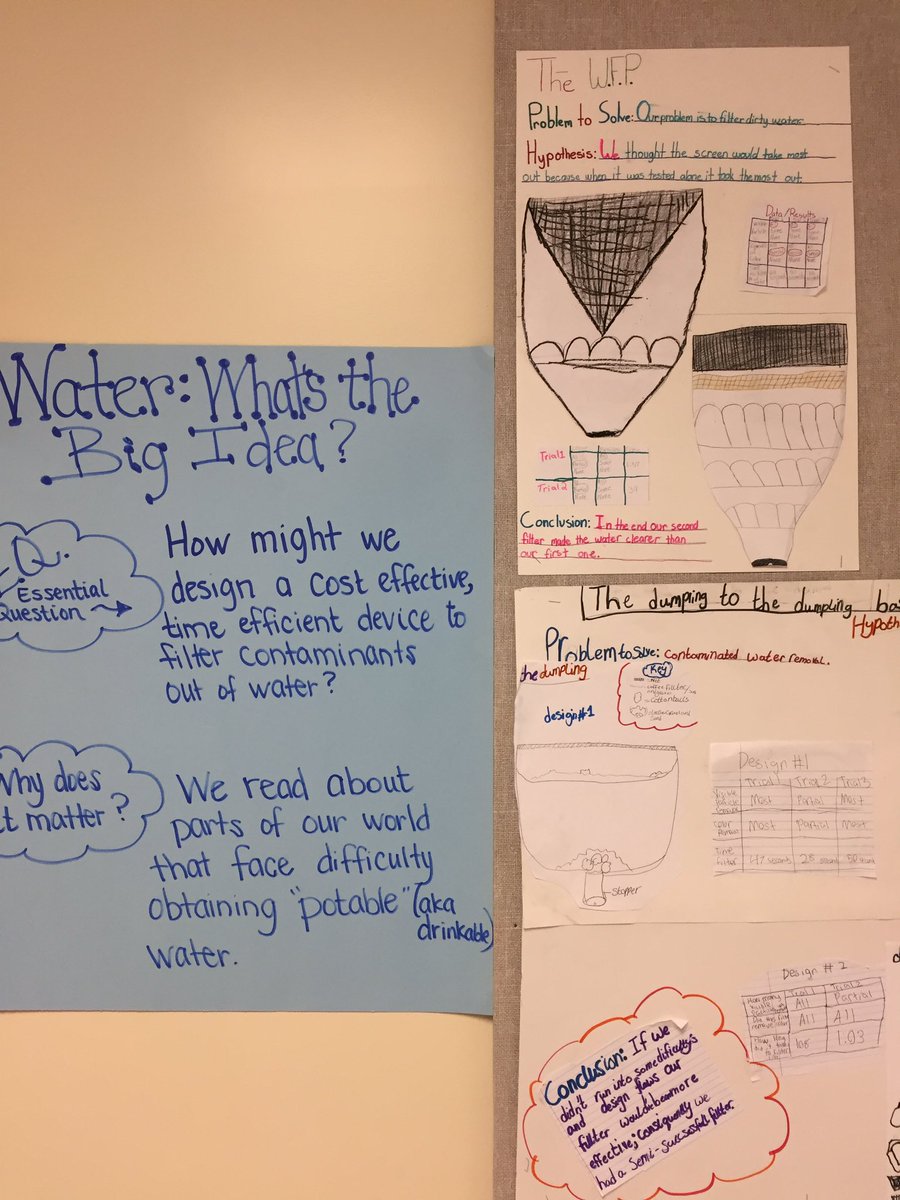 Water: What's the
Big Idea?
Q.
Essential
Question
How might we
design a cost effective,
time efficient device to
filter contaminants
out of water?
Why does
it matter?
We read about
parts of our world
that face difficulty
obtaining "potable" (aka
drinkable)
water.
The W.F.P.
Problem to Solve: Our problem is to filter dirty water.
Hypothesis: We thought the screen would take most
out because when it was tested alone it took the most out.
Data/Results
Trial 1
Trial 2
Conclusion: In the end our second
filter made the water clearer than
our first one.
The dumpling to the dumpling
Hypoth
Problem to solve: contaminated water removal.
the dumpling
Key
design #1
stopper
Design #1
Trial 1 Trial 2 Trial 3
Most Partial Most
Most Partial Most
Time
filter 47 seconds 28 seconds 50
Design # 2
Trial 1 Trial 2
All Partial
All All
1.03
Conclusion: If we
didn't run into some dificulty's
and design flaws our
fillter would be more
effective; consiquently we
had a semi-sucsessfull fillter.